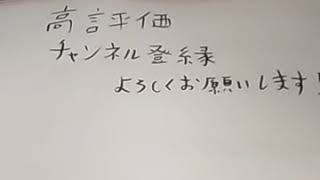 高評価
チャンネル登縁
よろしくお願いします!